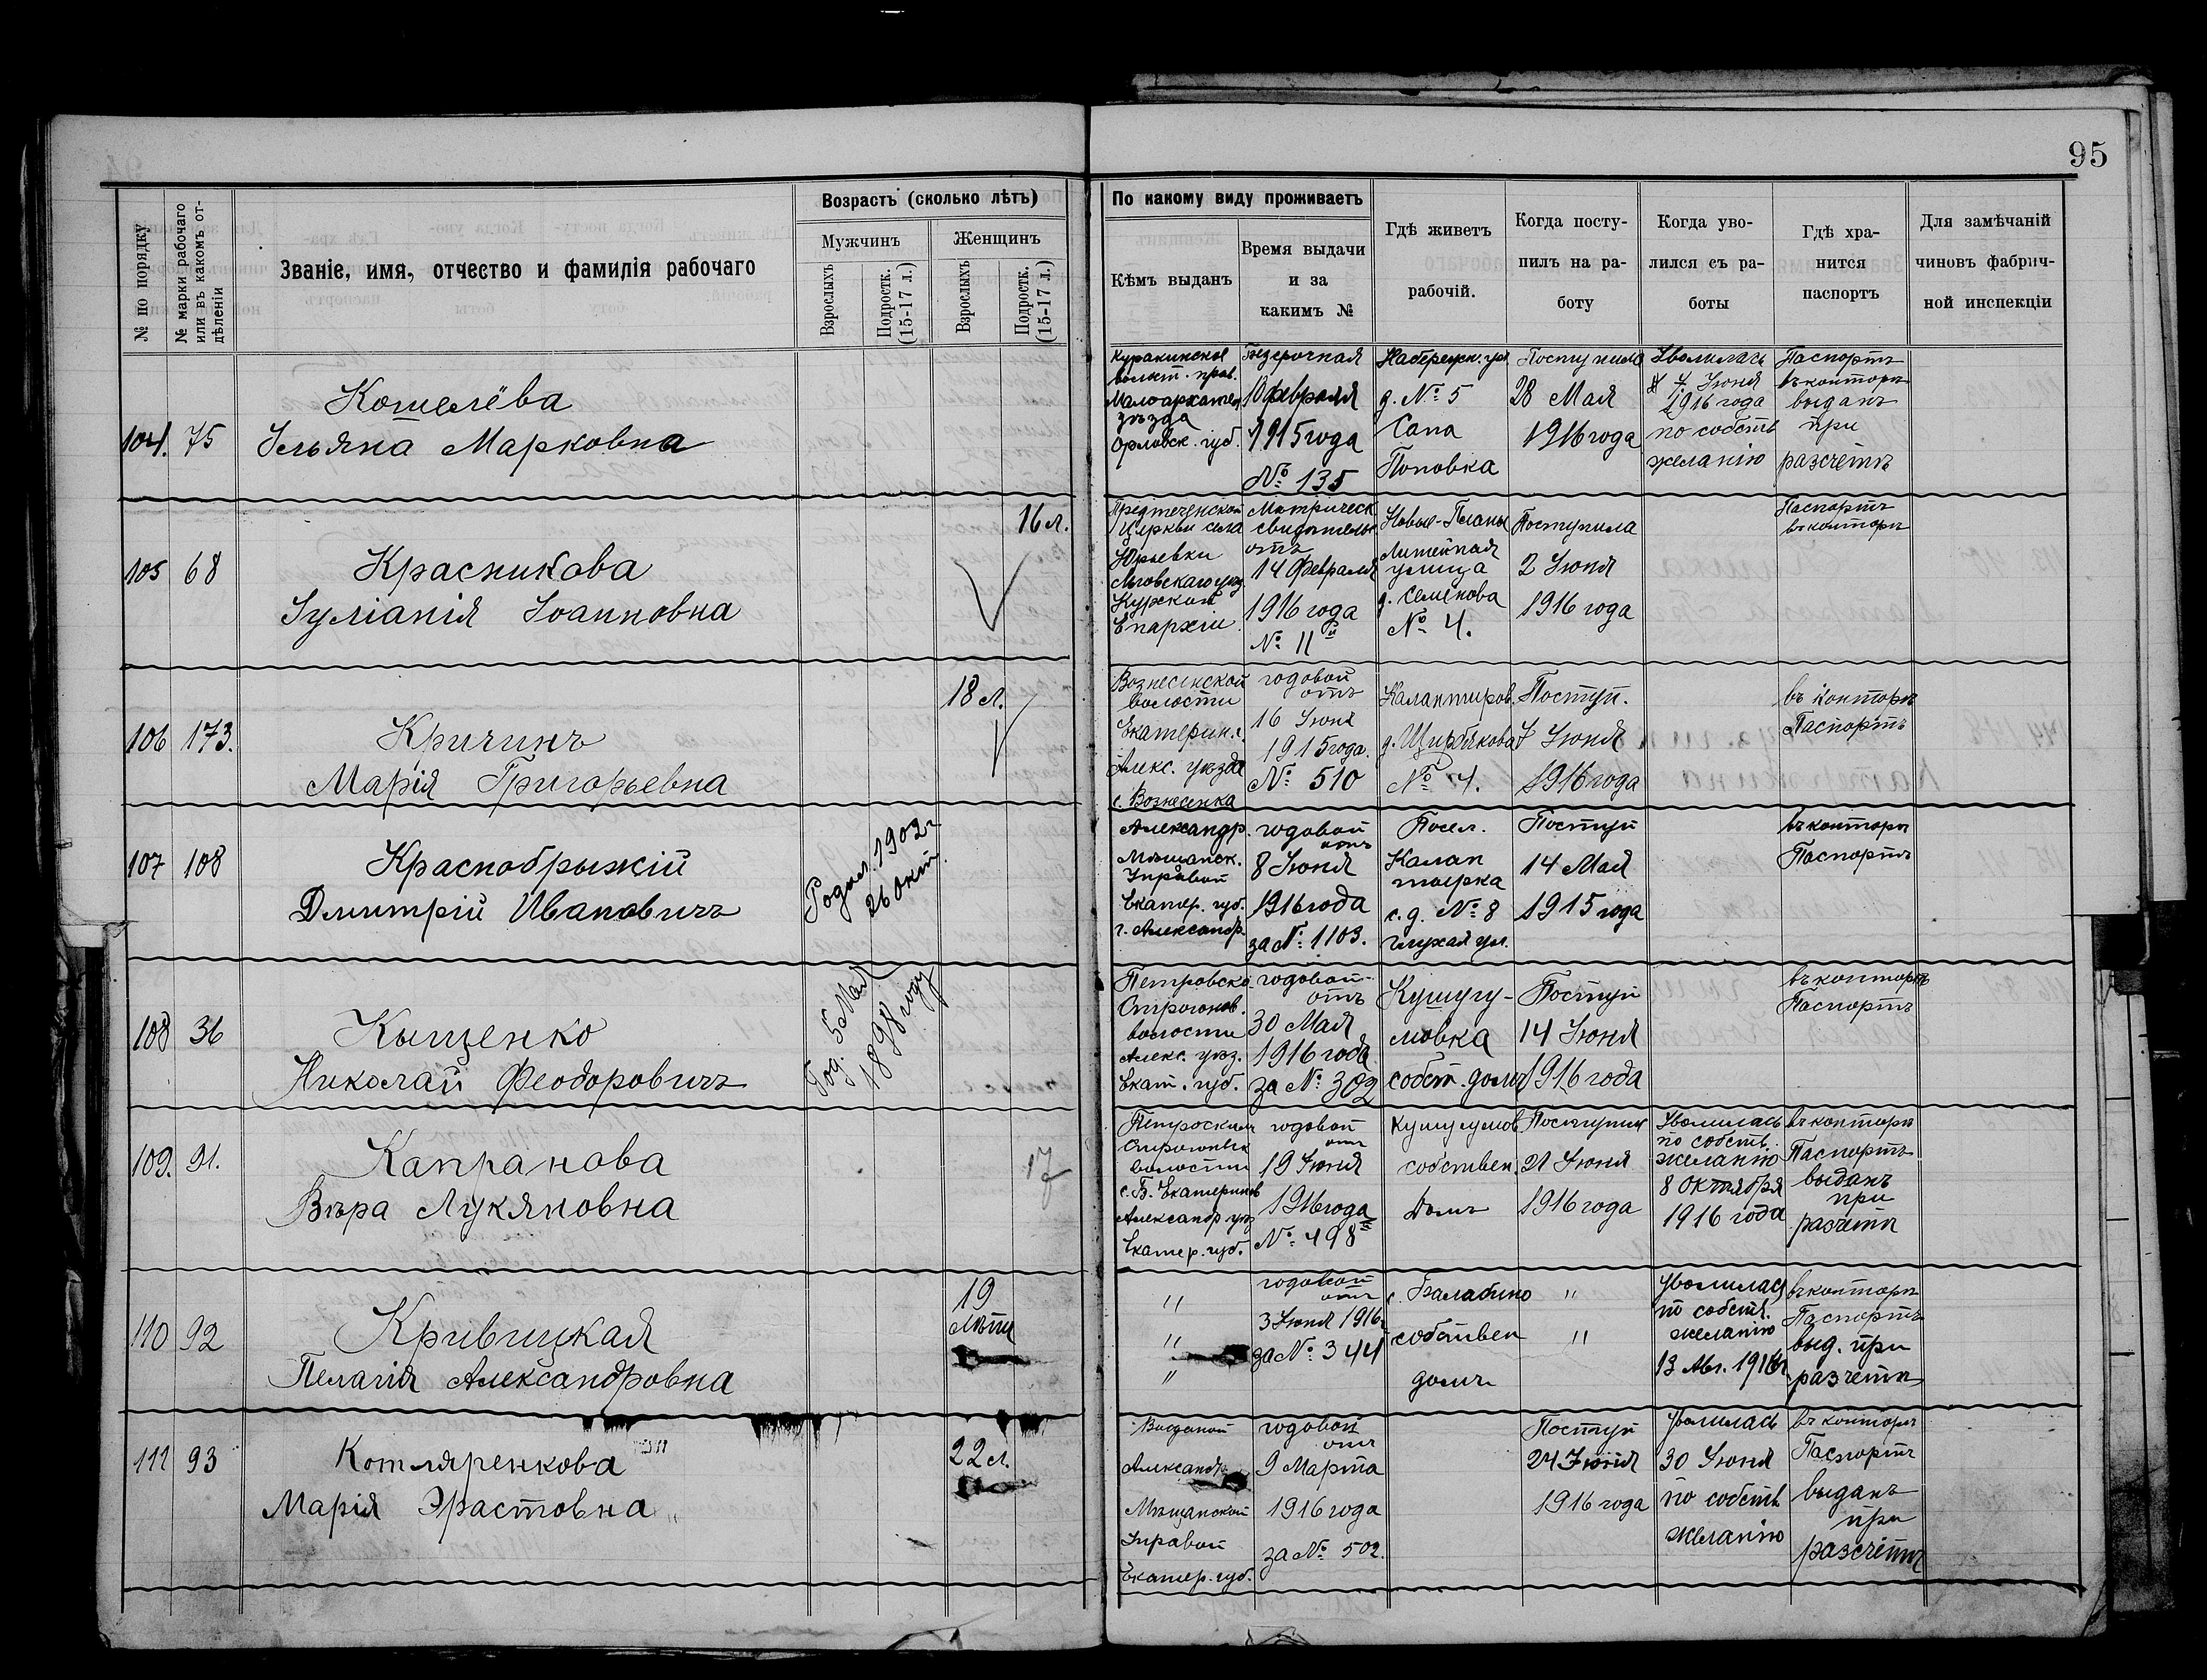 95
№ по порядку
№ марки рабочаго или въ какомъ отдѣленіи
Званіе, имя, отчество и фамилія рабочаго
Возрастъ (сколько лѣтъ)
Мужчинъ
Женщинъ
Взрослыхъ
Подростк. (15-17 л.)
Взрослыхъ
Подростк. (15-17 л.)
По какому виду проживаетъ
Кѣмъ выданъ
Время выдачи
и за
какимъ №
Гдѣ живетъ
рабочій.
Когда посту-
пилъ на ра-
боту
Когда уво-
лился съ ра-
боты
Гдѣ хра-
нится
паспортъ
Для замѣчаній
чиновъ фабрич-
ной инспекціи
104. 75
Кошелёва
Ульяна Марковна
Куракинское
волост. прав.
Малоархангел
уѣзда
Орловск. губ.
Безсрочная
10 февраля
1915 года
№ 135
Набережн. ул.
д. № 5
Сапа
Поповка
Поступила
28 Мая
1916 года
Уволилась
4 Июня
1916 года
по собств
желанію
Паспортъ
въ конторѣ
выданъ
при
разсчётѣ
105 68
Красникова
Іуліанія Іоанновна
16 л.
Предтеченской
Церкви села
Юрьевки
Льговскаго уѣз
Курской
Епархіи
Метрическ
свидѣтельс
отъ
14 Февраля
1916 года
№ 11й
Новые-Планы
Литейная
улица
д. Семенова
№ 4.
Поступила
2 Июня
1916 года
Паспортъ
въ конторѣ
106 173.
Кричинъ
Марія Григорьевна
18 л.
Вознесенской
волости
Екатерин. г.
Алекс. уѣзда
с. Вознесенка
годовой
отъ
16 Июня
1915 года.
№ 510
Калантыров.
д. Щирбакова
№ 4.
Поступ.
7 Июня
1916 года
въ конторѣ
Паспортъ
107 108
Краснобрыжій
Дмитрій Ивановичъ
Родил. 1902 г.
26 Окт.
Александр.
Мѣщанск.
Управой
Екатер. губ.
г. Александр.
годовой
отъ
8 Июня
1916 года
за № 1103.
Посел.
Калан
тырка
с. д. № 8
глухая ул.
Поступ
14 Мая
1915 года
въ конторѣ
Паспортъ
108 36
Кыщенко
Николай Феодоровичъ
Род. 5 Мая
1898 году
Петровско
Строгонов.
волости
Алекс. уѣз.
Екат. губ.
годовой
отъ
30 Мая
1916 года
за № 302
Кушугу-
мовка
собст. домъ
Поступ
14 Июня
1916 года
въ конторѣ
Паспортъ
109. 91.
Капранова
Вѣра Лукяновна
17
волости
с. Б. Екатеринов
Александр уѣз
Екатер. губ.
годовой
отъ
19 Июня
1916 года
№ 498
Кушугумов
собствен.
Домъ
Поступил
21 Июня
1916 года
Уволилась
по собств.
желанію
8 Октября
1916 года
въ конторѣ
Паспортъ
выданъ
при
разчетѣ
110 92
Кривицкая
Пелагія Александровна
19
лѣтъ
"
"
"
годовой
отъ
3 Июня 1916
за № 344
с. Балабино
собствен
домъ
"
"
Уволилась
по собств.
желанію
13 Авг. 1916 г.
въ конторѣ
Паспортъ
выд. при
разчетѣ
111 93
Котляренкова
Марія Эрастовна
22 л.
Выданой
Александр.
Мѣщанской
Управой
Екатер. губ.
годовой
отъ
9 Марта
1916 года
за № 502.
Поступ
24 Июня
1916 года
Уволилась
30 Июня
по собств
желанію
въ конторѣ
Паспортъ
выданъ
при
разсчётѣ